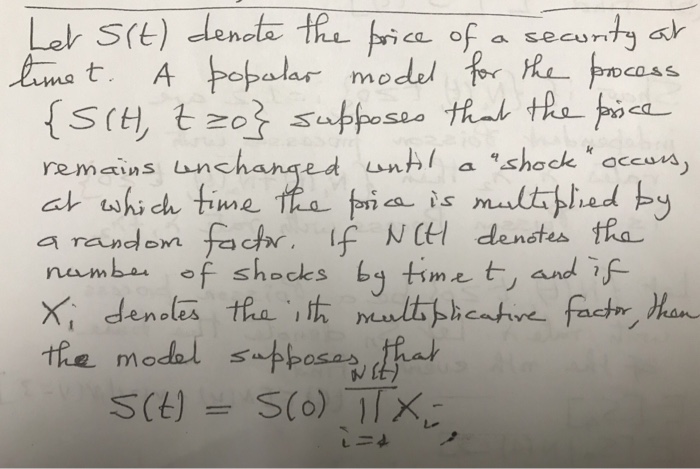 Let S(t) denote the price of a security at
time t. A popular model for the process
{S(t), t ≥ 0} supposes that the price
remains unchanged until a "shock" occurs,
at which time the price is multiplied by
a random factor. If N(t) denotes the
number of shocks by time t, and if
Xi denotes the ith multiplicative factor, then
the model supposes that
S(t) = S(0) ∏_{i=1}^{N(t)} Xi,